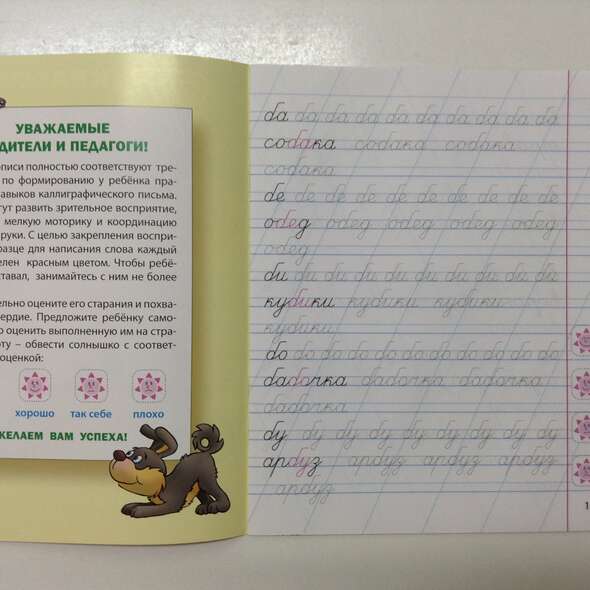 УВАЖАЕМЫЕ
ДИТЕЛИ И ПЕДАГОГИ!
описи полностью соответствуют тре-
по формированию у ребёнка пра-
авыков каллиграфического письма.
гут развить зрительное восприятие,
мелкую моторику и координацию
руки. С целью закрепления воспри-
разце для написания слова каждый
елен красным цветом. Чтобы ребё-
ставал, занимайтесь с ним не более
ельно оцените его старания и похва-
ердие. Предложите ребёнку само-
о оценить выполненную им на стра-
оту – обвести солнышко с соответ-
оценкой:
хорошо так себе плохо
ЖЕЛАЕМ ВАМ УСПЕХА!
ба ба ба ба ба ба ба ба ба ба
собака собака собака собака
собака
бе бе бе бе бе бе бе бе бе
обед обед обед обед обед
обед
би би би би би би би би би би
кубики кубики кубики
кубики
бо бо бо бо бо бо бо бо бо бо
бабочка бабочка бабочка
бабочка
бу бу бу бу бу бу бу бу бу
арбуз арбуз арбуз арбуз
арбуз
1